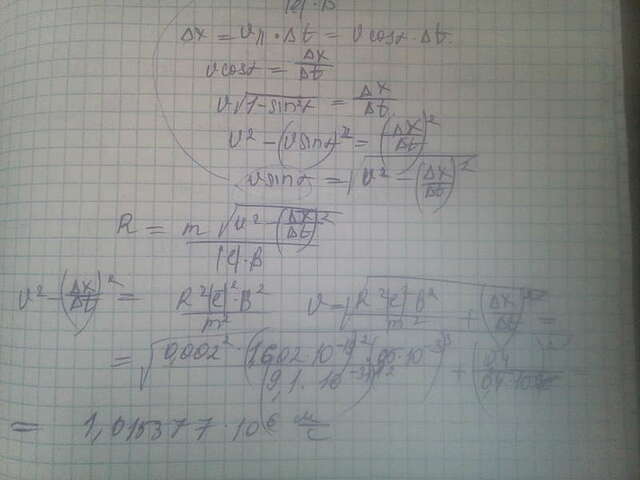 |e|·B
Δx = v_∥·Δt = v cosα·Δt.
v cosα = Δx/Δt
v√(1-sin²α) = Δx/Δt
v² - (v sinα)² = (Δx/Δt)²
v sinα = √(v² - (Δx/Δt)²)
R = m√(v² - (Δx/Δt)²) / |e|·B
v² - (Δx/Δt)² = R²|e|²·B²/m² v = √(R²|e|²B²/m² + (Δx/Δt)²) =
= √(0,002²·(1,602·10⁻¹⁹)²
= 1,015377·10⁶ м/с